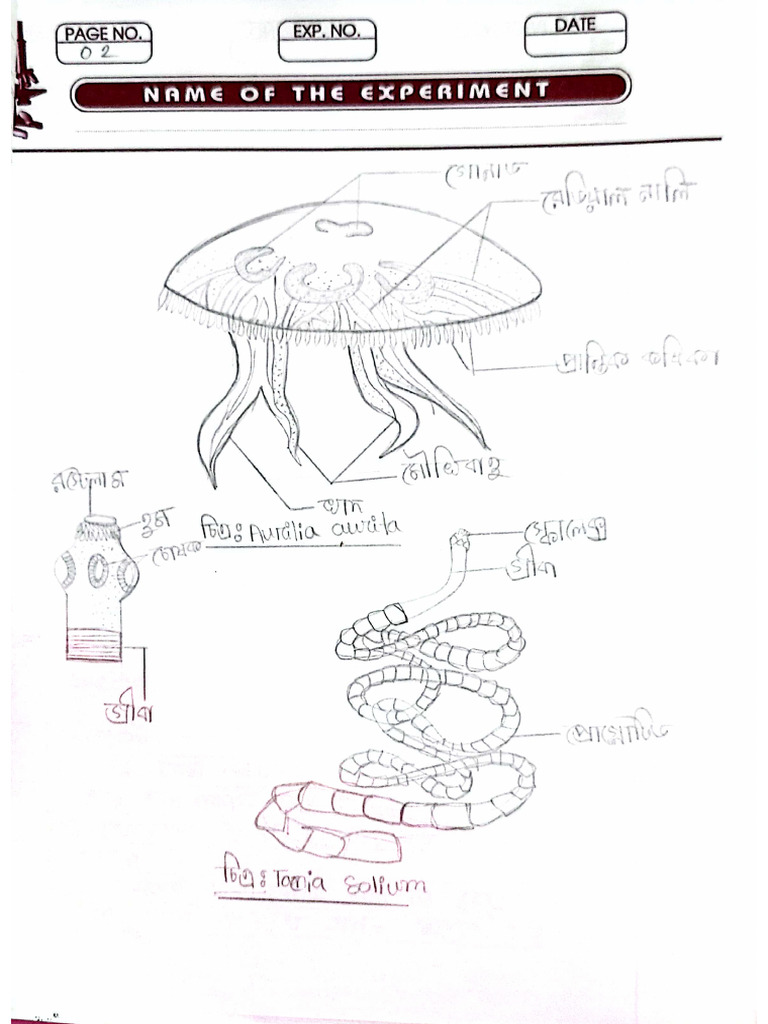 PAGE NO.
02
EXP. NO.
DATE
NAME OF THE EXPERIMENT
গোনাড
রেডিয়াল নালি
প্রান্তিক কর্ষিকা
মৌখিক বাহু
খাদ
চিত্রঃ Aurilia awrita
রস্টেলাম
হুক
চোষক
গ্রীবা
স্কোলেক্স
গ্রীবা
প্রোগ্লোটিড
চিত্রঃ Tania Solium